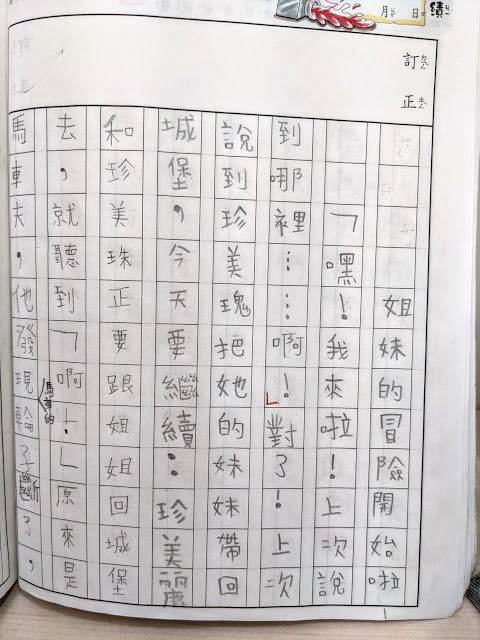 月 日 績
訂正
姐妹的冒險開始啦
「嘿！我來啦！上次說
到哪裡……啊！」對了！上次
說到珍美瑰把她的妹妹帶回
城堡，今天要繼續：珍美麗
和珍美珠正要跟姐姐回城堡
去，就聽到「啊！」原來是
馬車夫，他發現馬車的輪子斷了，